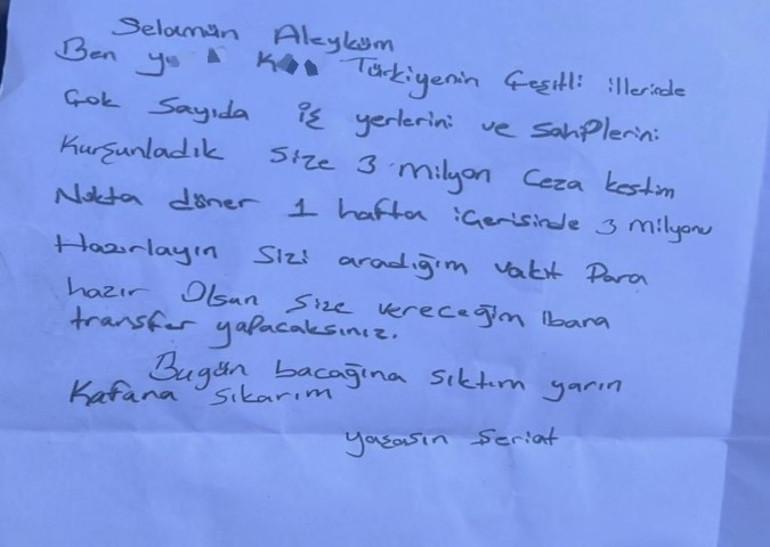 Selamün Aleyküm
Ben Türkiyenin Çeşitli illerinde
Çok Sayıda iş yerlerini ve sahiplerini
Kurşunladık size 3 milyon Ceza kestim
Nokta döner 1 hafta içerisinde 3 milyonu
Hazırlayın sizi aradığım vakit Para
hazır Olsun size vereceğim ibana
transfer yapacaksınız.
Bugün bacağına sıktım yarın
Kafana sıkarım
yaşasın Şeriat